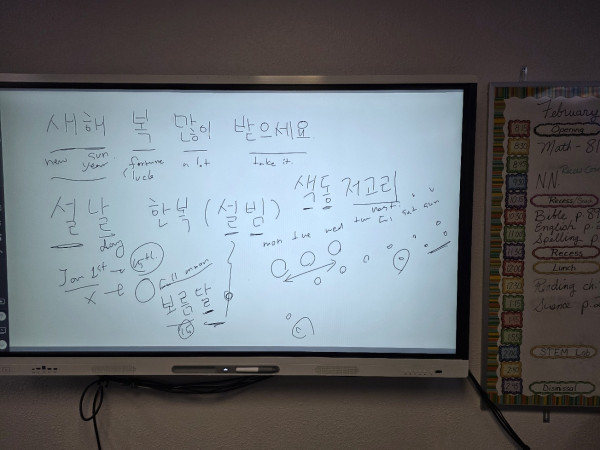 새해 복 많이 받으세요
new sun year fortune luck a lot take it
설날 한복 (설빔) 색동 저고리
day
mon tue wed thr fri sat sun
Jan 1st
15th
full moon
X
보름달
15
February
Opening
Math - 81
N.N.
Recess
Bible p.
English p.
Spelling p.
Recess
Lunch
Reading ch.
Science p. 2
STEM Lab
Dismissal